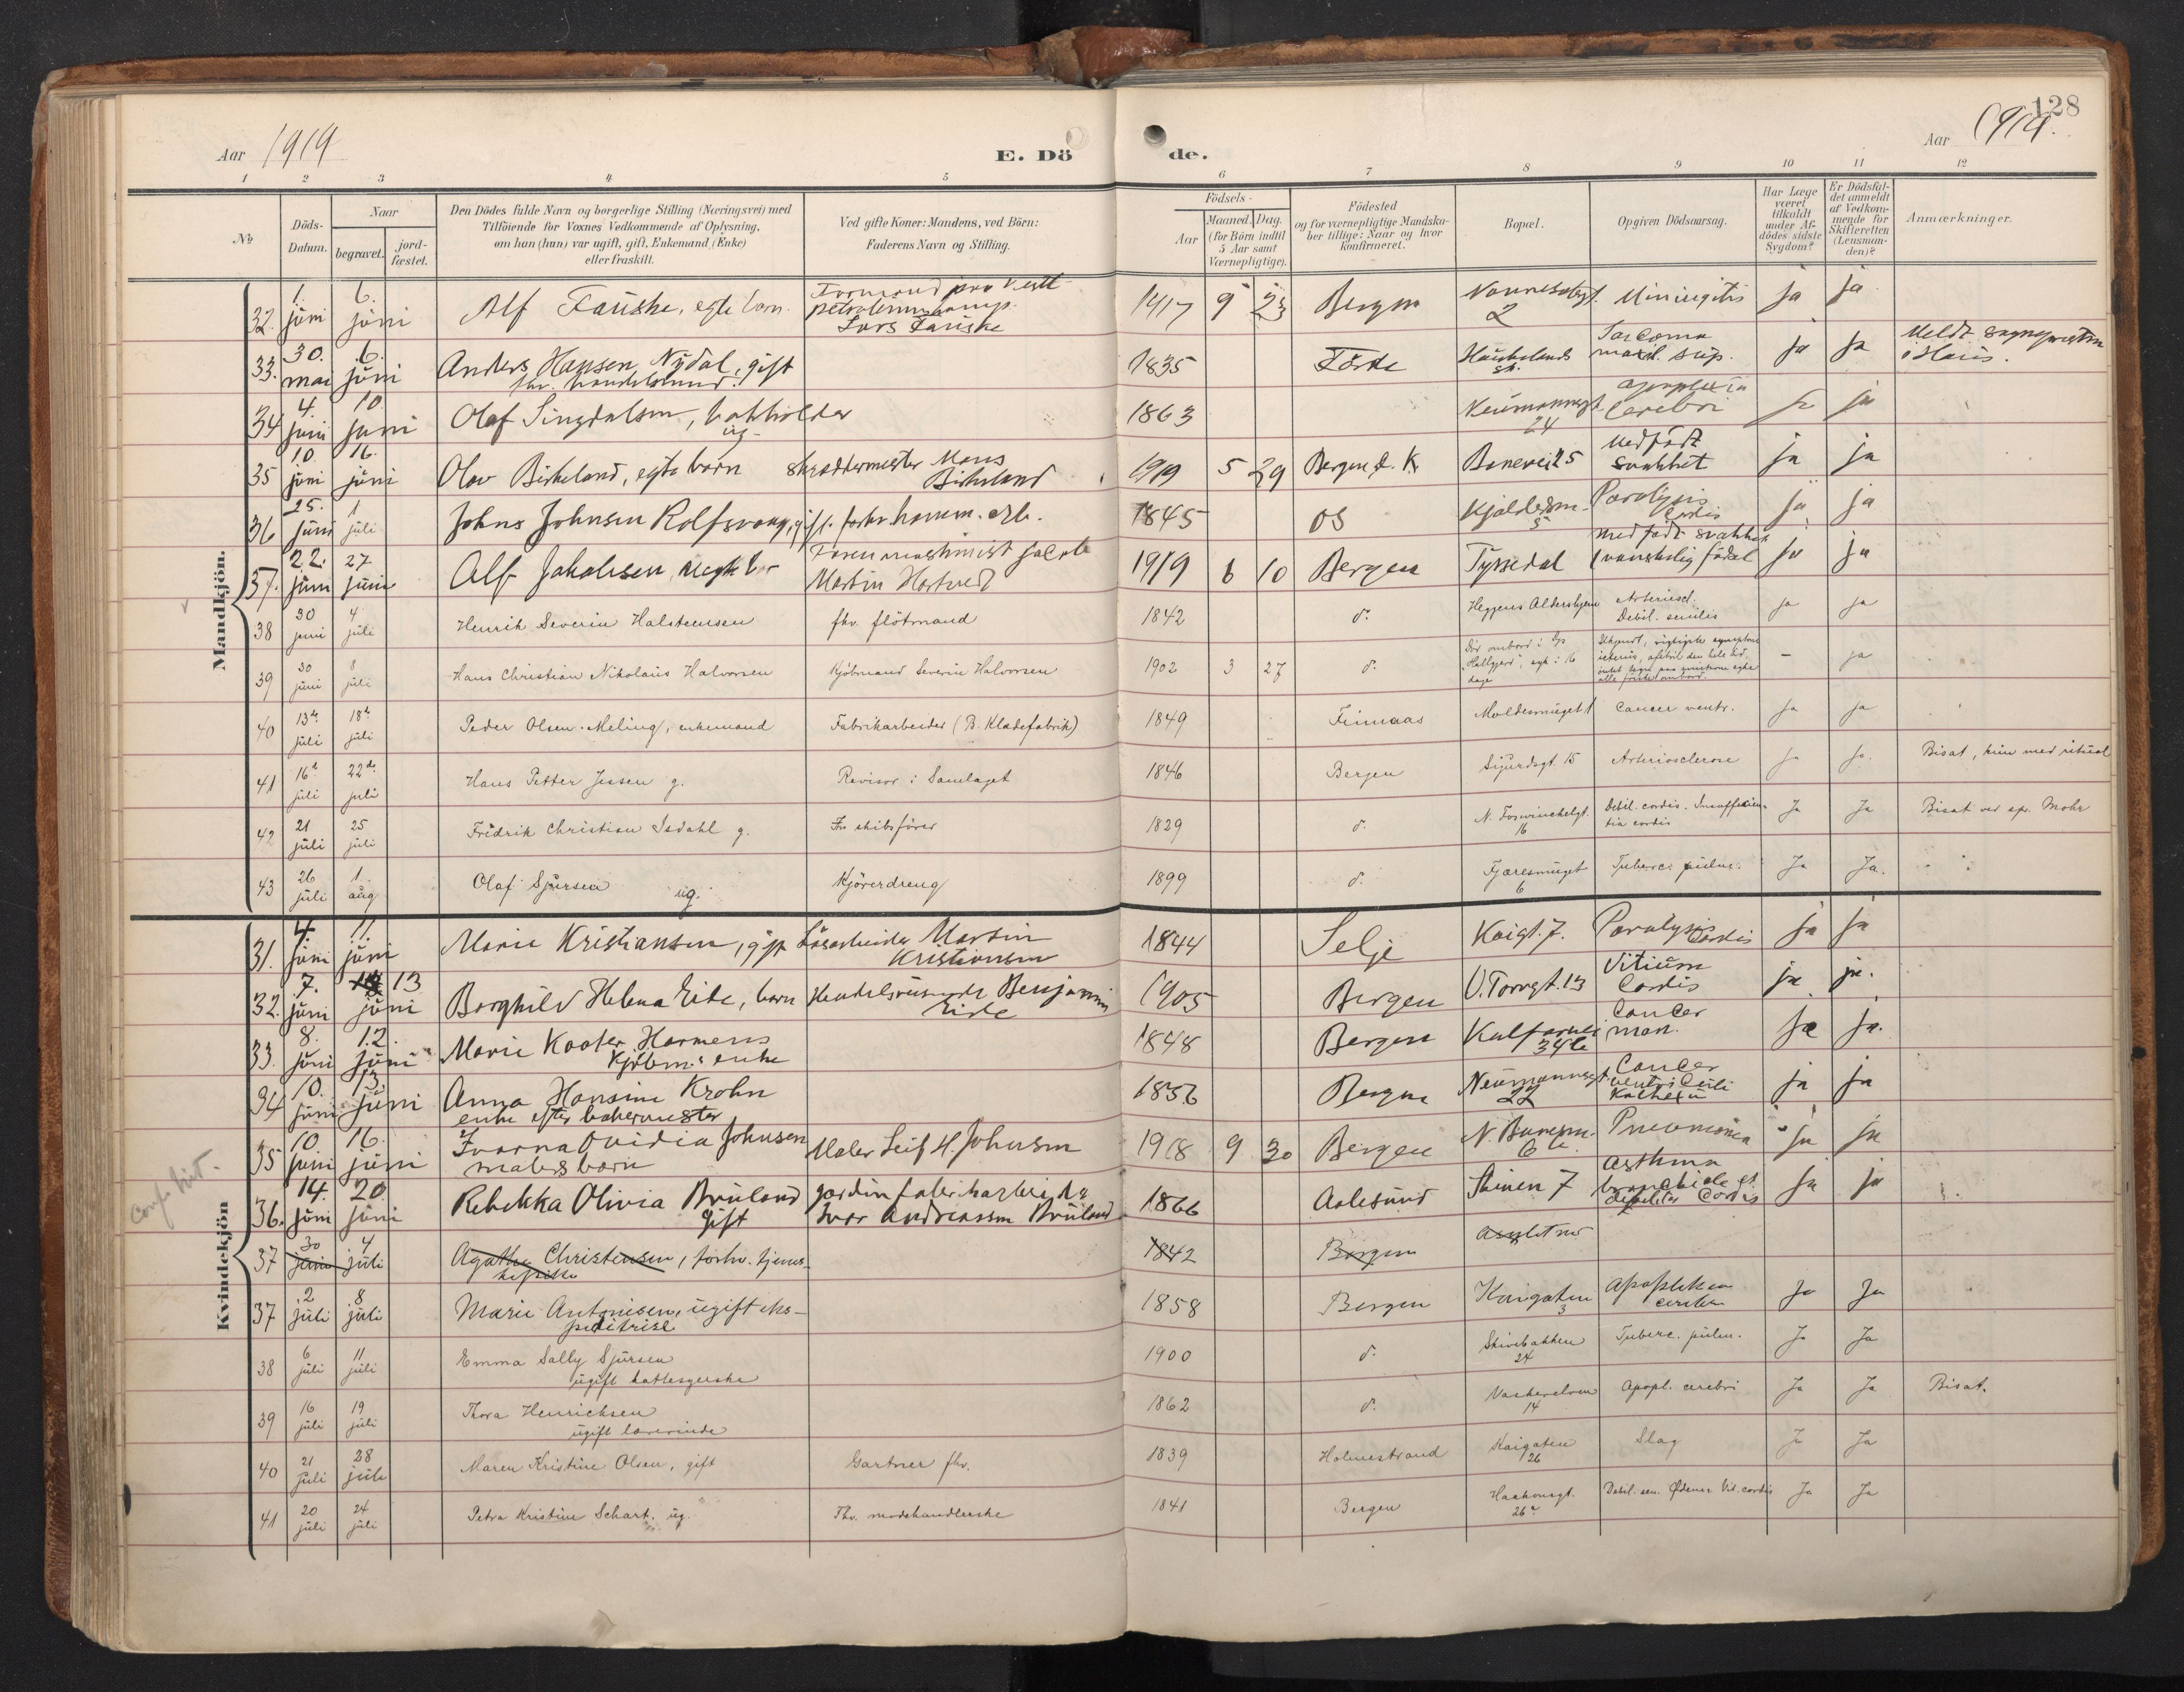 128
Aar 1919
E. Dö de.
Aar 1919.
1 2 3 4 5 6 7 8 9 10 11 12
No
Döds-Datum.
Naar
begravet.
jord-fæstet.
Den Dödes fulde Navn og borgerlige Stilling (Næringsvei) med
Tilföiende for Voxnes Vedkommende af Oplysning,
om han (hun) var ugift, gift, Enkemand (Enke)
eller fraskilt.
Ved gifte Koner: Mandens, ved Börn:
Faderens Navn og Stilling.
Födsels-
Aar
Maaned. Dag.
(for Börn indtil
5 Aar samt
Værnepligtige).
Födested
og for værnepligtige Mandska-
ber tillige: Naar og hvor
konfirmeret.
Bopæl.
Opgiven Dödsaarsag.
Har Læge
været
tilkaldt
under Af-
dödes sidste
Sygdom?
Er Dödsfal-
det anmeldt
af Vedkom-
mende for
Skifteretten
(Lensman-
den)?
Anmærkninger.
Mandkjön.
32. 1. jüni 6. jüni Alf Fauske, egte barn. Formand Vestl. petroleumskomp. Lars Fauske 1917 9 23 Bergen 2 ja ja
33. 30. mai 6. jüni Anders Hansen Nydal, gift fhv. 1835 Förde Haukelands sk. Sarcoma maxil. sup. ja ja Meldt sogneprsten i Haus.
34 4. juni 10 juni Olaf ug. 1863 Neümannsgt. 24 apoplexia cerebri ja ja
35 10. jüni 16. jüni Olav Birkeland, egte barn skræddermester Mons Birkeland 1919 5 29 Bergen d. K. Banevei 25 Medfödt svakhet ja ja
36 25. jüni 1 jüli Johns Johnsen Rolfsvaag, gift. forhv. 1845 Os 5 Paralysis Cordis ja ja
37. 22. jüni 27 jüni Alf Jakobsen Jacob Martin 1919 6 10 Bergen Tyssedal medfödt svakhet (vanskelig födsel ja ja
38 30 juni 4 juli Henrik Severin Halstensen fhv. flötmand 1842 d. Heggens Aldershjem Arteriescl. Debil. senilis ja ja
39 30 jüni 8 jüli Hans Christian Nikolaüs Halvorsen Kjöbmand Severin Halvorsen 1902 3 27 d. Död ombord i D/s syk i 16 dage – ja
40 13de jüli 18de jüli Peder Olsen Meling, enkemand Fabrikarbeider (B. Klædefabrik) 1849 Finnaas Moldesmüget 1 Cancer ventr. ja ja
41 16d. jüli 22de. juli Hans Petter Jessen g. Revisor i Samlaget 1846 Bergen Sigurdsgt. 15 Arteriosclerose ja ja. Bisat, kün med ritüal
42 21 jüli 25 jüli Fridrik Christian Isdahl g. Fv. skibsförer 1829 d. N. Foswinckelgt. 16 Debil. cordis. Insufficien-tia cordis Ja Ja Bisat ved sp. Mohr
43 26 jüli 1. aüg Olaf Sjürsen üg. Kjörerdreng 1899 d. Fjæresmüget 6 Tuberc. pülm. Ja Ja.
Kvindekjön
31. 4. jüni 11. jüni Marie Kristiansen, gift Lösarbeider Martin Kristiansen 1844 Selje Kaigt. 7. Paralysis cordis ja ja
32. 7. jüni 13 jüni Borghild Helena Eide, barn Handelsreisende Benjamin Eide 1905 Bergen V. Torvgt. 13 Vitiüm Cordis ja ja.
33. 8. jüni 12. jüni Marie Kooter Harmens Kjöbm.s enke 1848 Bergen Kalfarvei 34 b Cancer mam. ja ja.
34 10. jüni 13. jüni Anna Hansine Krohn enke efter bakermester 1856 Bergen Neümannsgt. 22 Cancer ventriculi Kachexi ja ja
35 10. jüni 16. jüni Ivarna Ovidia Johnsen malers barn Maler Leif H. Johnsen 1918 9 30 Bergen 6 Pneumonia ja ja
36. 14. jüni 20. jüni Rebekka Olivia Brüland gift Ivar Andreassen Brüland 1866 Aalesünd Steinen 7 asthma bronchiale et debilitas cordis ja ja
37 30 jüni 4 jüli Agathe Christensen, forhv. 1842 Bergen
37 2 jüli 8 jüli Marie Antonisen, ügift eks-peditrise 1858 Bergen Kaigaten 3 Apoplekxia cerebri Ja Ja
38 6 jüli 11 jüli Emma Sally Sjürsen ügift hattesyerske 1900 d. Skivebakken 24 Tuberc. pülm. Ja Ja
39 16 jüli 19 jüli Thora Henrichsen ügift lærerinde 1862 d. Vaskerelven 14 Apopl. cerebri Ja Ja Bisat.
40 21 jüli 28 jüli Maren Kristine Olsen, gift Gartner fhv. 1839 Holmestrand Kaigaten 26 Slag Ja Ja
41 20 jüli 24 jüli Petra Kristine Schart. üg. Fhv. modehandlerske 1841 Bergen Haakonsgt. 26 Debil. sen. Ødemer Vit. cordis Ja Ja